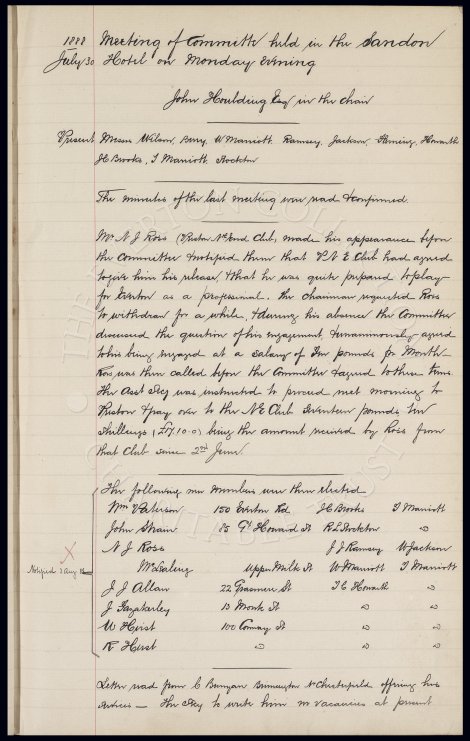 1888 Meeting of Committe held in the Sandon
July 30 Hotel on Monday Evening
John Houlding Esq in the chair
Present Messrs Wilson, Berry, W Marriott, Ramsey, Jackson, Fleming, Howarth
JC Brooks, T Marriott, Stockton
The minutes of the last meeting were read & confirmed.
Mr N J Ross (Preston Nth End Club) made his appearance before
the Committee & notified them that P N E Club had agreed
to give him his release, & that he was quite prepared to play
for Everton as a professional. The chairman requested Ross
to withdraw for a while, & during his absence the Committee
discussed the question of his engagement, & unanimously agreed
to his being engaged at a salary of Ten pounds per Month
Ross was then called before the Committee & agreed to these terms.
The Asst Secy was instructed to proceed next morning to
Preston & pay over to the N E Club Seventeen pounds, ten
shillings (£17.10.0) being the amount received by Ross from
that Club since 2nd June
The following new members were then elected
Wm Paterson 150 Everton Rd JC Brooks T Marriott
John Shaw 85 Gt Howard St R L Stockton "
N J Ross J J Ramsey W Jackson
Notified 3 Aug McSaleny Upper Milk St W Marriott T Marriott
J J Allan 22 Grasmere St T C Howarth "
J Fazakerley 13 Monk St " "
W Hirst 100 Conway St " "
R Hirst " " "
Letter read from C Bunyan Brimington Nr Chesterfield offering his
services — The Secy to write him no vacancies at present
THE EVERTON COLLECTION
CHARITABLE TRUST